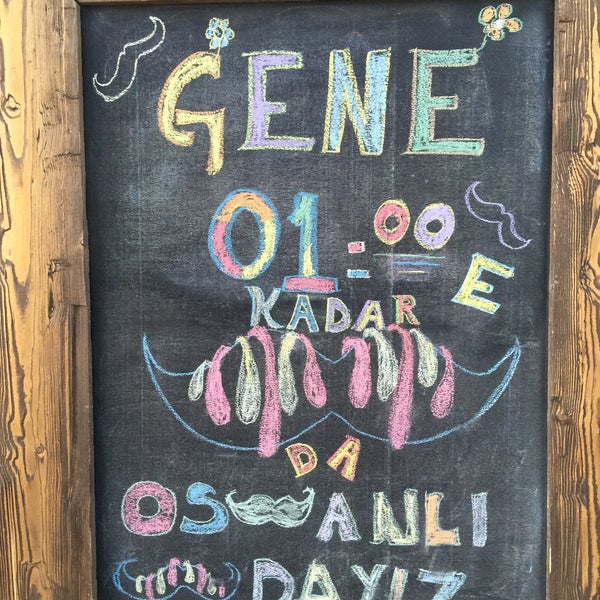 GENE
01:00 E
KADAR
DA
OSMANLI
DAYIZ